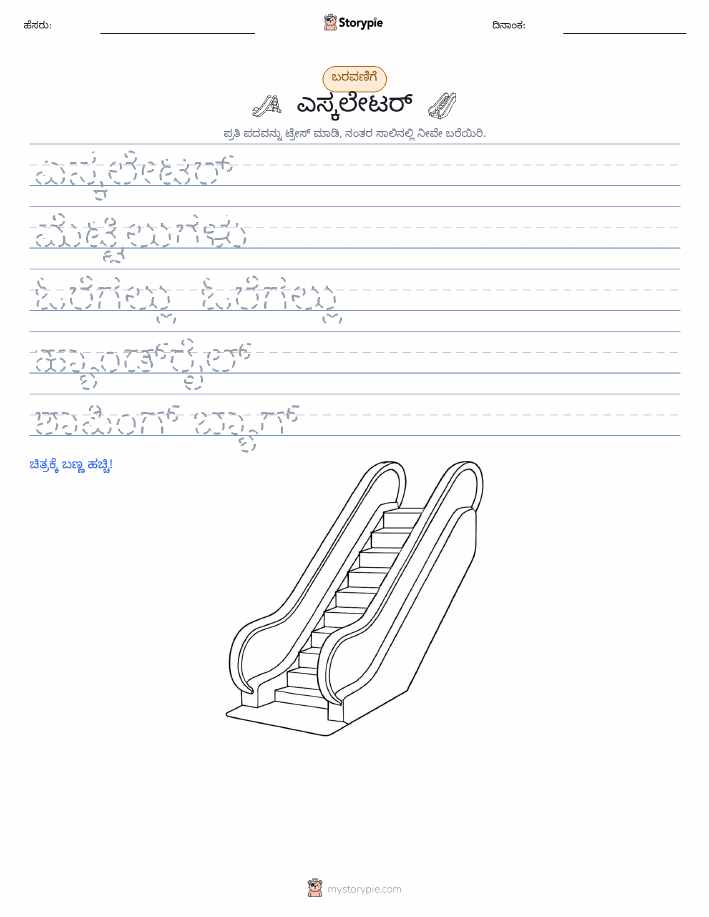 ಹೆಸರು: Storypie ದಿನಾಂಕ:
ಬರವಣಿಗೆ
ಎಸ್ಕಲೇಟರ್
ಪ್ರತಿ ಪದವನ್ನು ಟ್ರೇಸ್ ಮಾಡಿ, ನಂತರ ಸಾಲಿನಲ್ಲಿ ನೀವೇ ಬರೆಯಿರಿ.
ಎಸ್ಕಲೇಟರ್
ಮೆಟ್ಟಿಲುಗಳು
ಓರೆಗಲ್ಲು ಓರೆಗಲ್ಲು
ಹ್ಯಾಂಡ್‌ರೈಲ್
ಶಾಪಿಂಗ್ ಬ್ಯಾಗ್
ಚಿತ್ರಕ್ಕೆ ಬಣ್ಣ ಹಚ್ಚಿ!
mystorypie.com